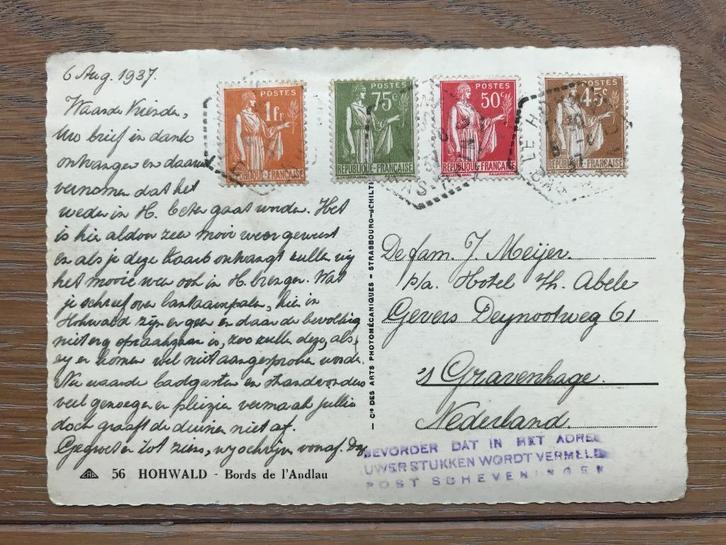 6 Aug. 1937.
Waarde Vrienden,
Uw brief in dank
ontvangen en daarin
vernomen dat het
weder in H. beter gaat worden. Het
is hier aldoor zeer mooi weer geweest
en als je deze kaart ontvangt zullen wij
het mooie weer ook in H. brengen. Wat
je schreef over hier in
Hohwald zijn er geen en daar de bevolking
niet erg is, zoo zulle deze, als
er komen wel niet aangesproken worde.
Nu waarde badgasten en strand
veel genoegen en plezier vermaak jullie
doch graaft de duinen niet af.
Gegroet en tot ziens, wij schrijven vanaf
POSTES
1fr
RÉPUBLIQUE FRANÇAISE
POSTES
75c
RÉPUBLIQUE FRANÇAISE
POSTES
50c
RÉPUBLIQUE FRANÇAISE
POSTES
45c
RÉPUBLIQUE FRANÇAISE
LE H
De fam. J. Meijer.
p/a. Hotel Th. Abele
Gevers Deynootweg 61
's Gravenhage.
Nederland.
BEVORDER DAT IN HET ADRES
UWER STUKKEN WORDT VERMELD
POST SCHEVENINGEN
Cie DES ARTS PHOTOMÉCANIQUES - STRASBOURG-SCHILTI
56 HOHWALD - Bords de l'Andlau